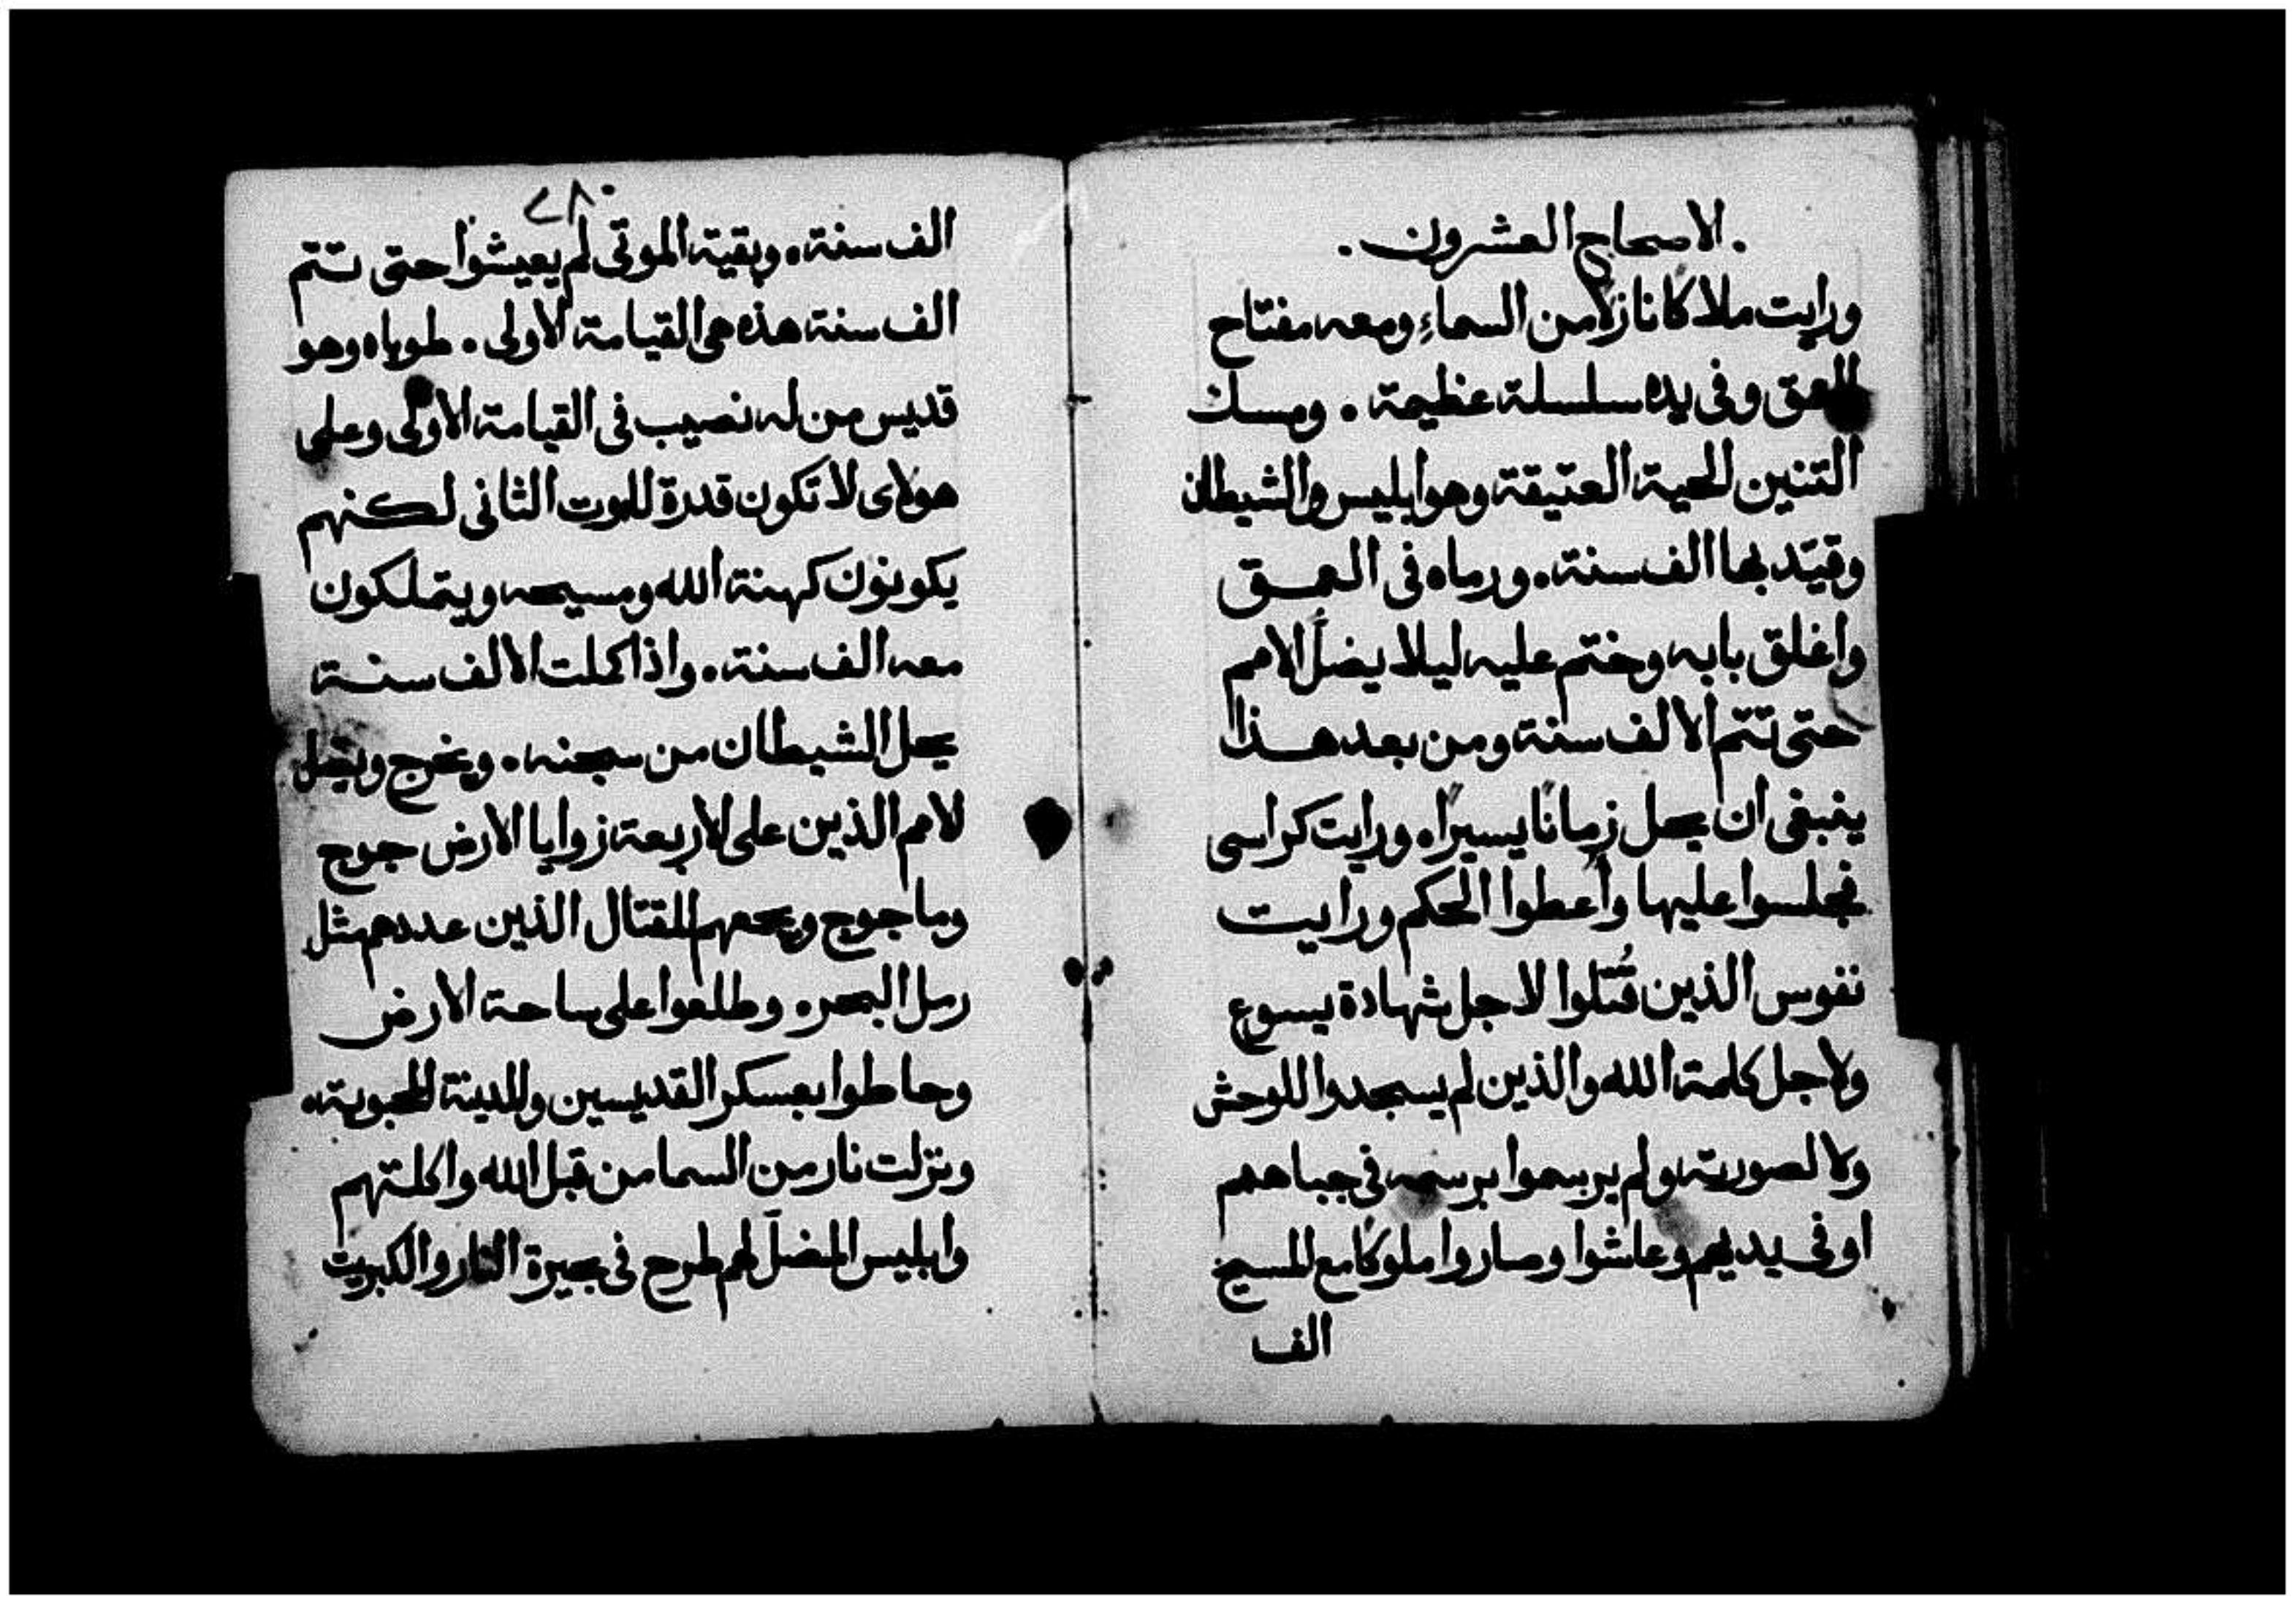 . الاصحاح العشرون .
ورايت ملاكًا نازلًا من السماءِ ومعه مفتاح
العمق وفى يده سلسلة عظيمة . ومسك
التنين الحية العتيقة وهو ابليس والشيطان
وقيّد بها الف سنة . ورماه فى العمق
واغلق بابه وختم عليه ليلا يضل الامم
حتى تتم الالف سنة ومن بعد هذا
ينبغى ان يحل زمانًا يسيرًا . ورايت كراسى
فجلسوا عليها وأعطوا الحكم ورايت
نفوس الذين قُتلوا لاجل شهادة يسوع
ولاجل كلمة الله والذين لم يسجدوا للوحش
ولا لصورته ولم يرسموا برسمه فى جباههم
او فى يديهم وعاشوا وصاروا ملوكًا مع المسيح
الف
٢٨٠
الف سنة . وبقية الموتى لم يعيشوا حتى تتم
الف سنة هذه هى القيامة الاولى . طوباه وهو
قديس من له نصيب فى القيامة الاولى وعلى
هولاى لا تكون قدرة للموت الثانى لكنهم
يكونون كهنة الله ومسيحه ويتملكون
معه الف سنة . واذا كملت الالف سنة
يحل الشيطان من سجنه . ويخرج ويضل
لامم الذين على الاربعة زوايا الارض جوج
وماجوج ويجمعهم للقتال الذين عددهم مثل
رمل البحر . وطلعوا على ساحة الارض
وحاطوا بعسكر القديسين والمدينة المحبوبة .
ونزلت نار من السما من قبل الله واكلتهم
وابليس المضلّ لهم طرح فى بحيرة النار والكبريت